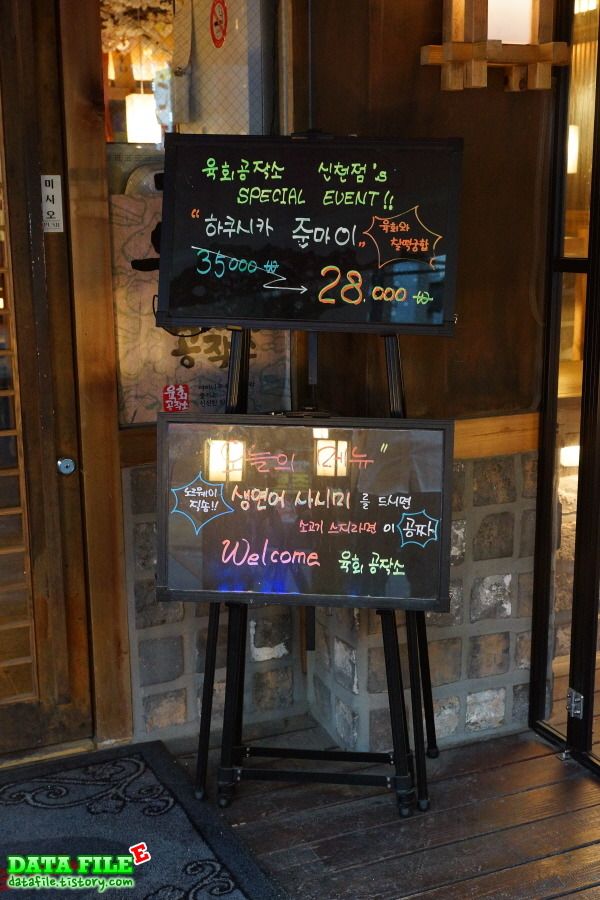 미시오
PUSH
육회공작소 신천점's
SPECIAL EVENT!!
"하쿠시카 준마이"
육회와
찰떡궁합
35000₩
→ 28.000₩
공작소
육회
공작소
오늘의 메뉴"
노르웨이
직송!!
생연어 사시미를 드시면
소고기 스지라면이 공짜
Welcome 육회공작소
DATA FILE E
datafile.tistory.com